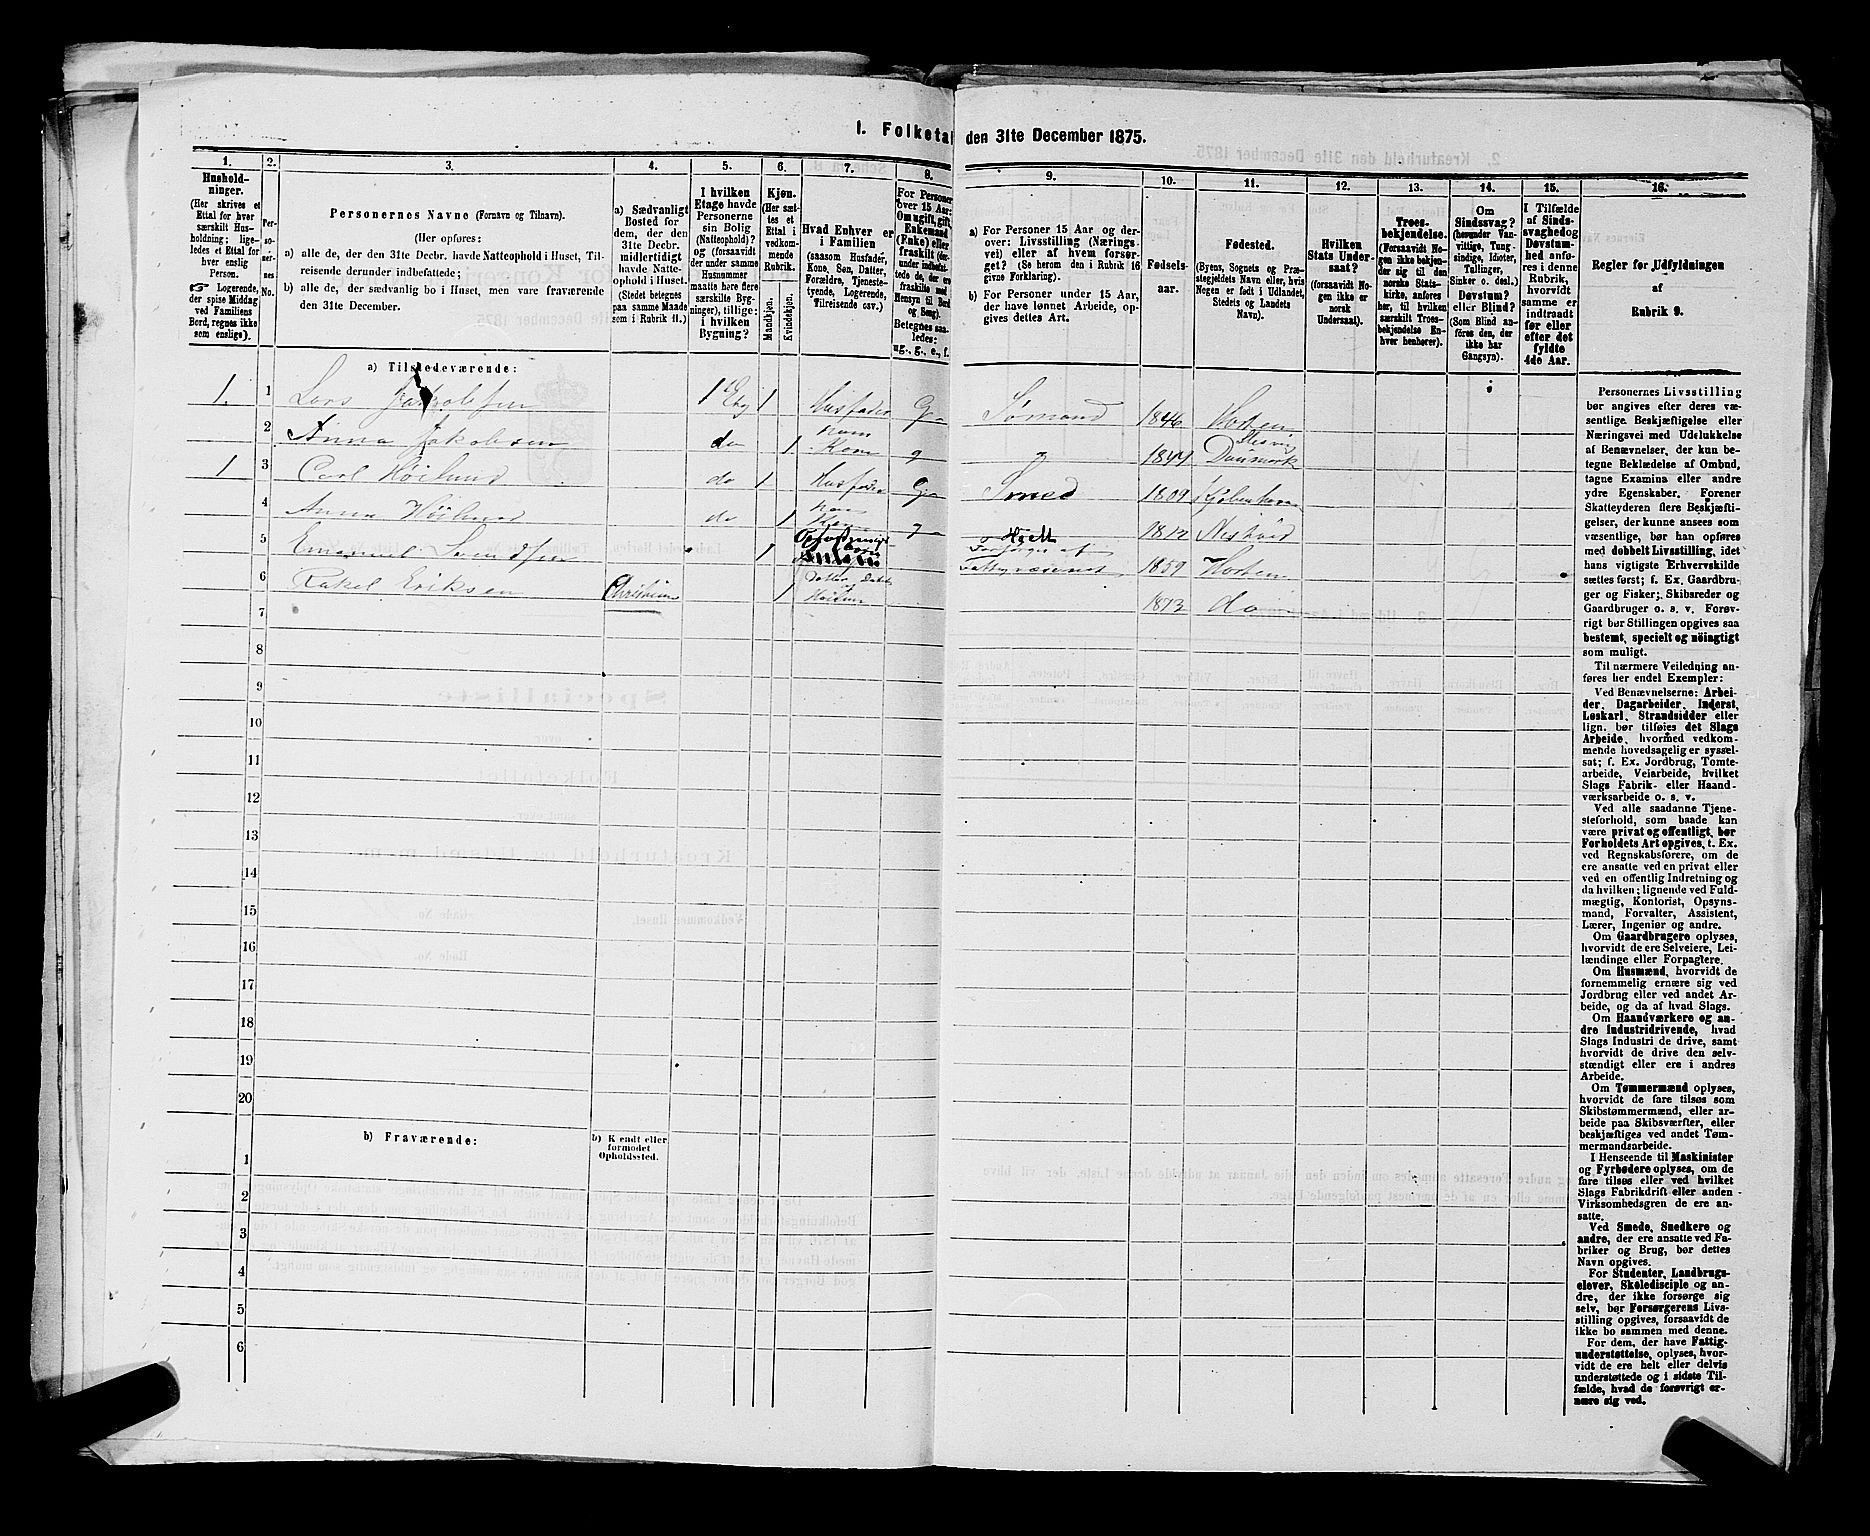 I. Folketal den 31te December 1875.
1.
Hushold-
ninger.
(Her skrives et
Ettal for hver
særskilt Hus-
holdning; lige-
ledes et Ettal for
hver enslig
Person.
☞ Logerende,
der spise Middag
ved Familiens
Bord, regnes ikke
som enslige).
2.
Per-
so-
ner-
nes
No.
3.
Personernes Navne (Fornavn og Tilnavn).
(Her opføres:
a) alle de, der den 31te Decbr. havde Natteophold i Huset, Til-
reisende derunder indbefattede;
b) alle de, der sædvanlig bo i Huset, men vare fraværende
den 31te December.
4.
a) Sædvanligt
Bosted for
dem, der den
31te Decbr.
midlertidigt
havde Natte-
ophold i Huset.
(Stedet betegnes
paa samme Maade
som i Rubrik 11.)
5.
I hvilken
Etage havde
Personerne
sin Bolig
(Natteophold)?
og (forsaavidt
der under samme
Husnummer
maatte høre flere
særskilte Byg-
ninger), tillige:
i hvilken
Bygning?
6.
Kjøn.
(Her sæt-
tes et
Ettal i
vedkom-
mende
Rubrik.
Mandkjøn.
Kvindekjøn.
7.
Hvad Enhver er
i Familien
(saasom Husfader,
Kone, Søn, Datter,
Forældre, Tjeneste-
tyende, Logerende,
Tilreisende osv.)
8.
For Personer
over 15 Aar:
Om ugift, gift,
Enkemand
(Enke) eller
fraskilt (der-
under indbefat-
tede de, der ere
fraskilte med
Hensyn til Bord
og Seng).
Betegnes saa-
ledes:
ug., g., e., f.
9.
a) For Personer 15 Aar og der-
over: Livsstilling (Nærings-
vei) eller af hvem forsør-
get? (Se herom den i Rubrik 16
givne Forklaring).
b) For Personer under 15 Aar,
der have lønnet Arbeide, op-
gives dettes Art.
10.
Fødsels-
aar.
11.
Fødested.
(Byens, Sognets og Præ-
stegjeldets Navn eller, hvis
Nogen er født i Udlandet,
Stedets og Landets
Navn).
12.
Hvilken
Stats Under-
saat?
(forsaavidt No-
gen ikke er
norsk
Undersaat).
13.
Troes-
bekjendelse.
(Forsaavidt No-
gen ikke bekjen-
der sig til den
norske Stats-
kirke, anføres
her, til hvilken
særskilt Troes-
bekjendelse En-
hver henhører).
14.
Om
Sindssvag?
(herunder Van-
vittige, Tung-
sindige, Idioter,
Tullinger,
Sinker o. desl.)
Døvstum?
eller Blind?
(Som Blind an-
føres den, der
ikke har
Gangsyn).
15.
I Tilfælde
af Sinds-
svaghed og
Døvstum-
hed anfø-
res i denne
Rubrik,
hvorvidt
samme er
indtraadt
før eller
efter det
fyldte
4de Aar.
16.
Regler for Udfyldningen
af
Rubrik 9.
a) Tilstedeværende:
1. 1 Lars Jakobsen 1 Etg 1 Husfader G Sømand 1846 Horten
2 Anna Jakobsen do 1 hans Kone g 1844 Slesvig Danmark
1 3 Carl Höilund do 1 Husfader G Smed 1809 Kjøbenhavn
4 Anna Höilund do 1 hans Kone g 1812 Nestved
5 Emanuel Svendsen 1 Helt Forsörges af Fattigvæsenet 1859 Horten
6 Rakel Eriksen 1 Datter Datter af Höilun 1873 do
7
8
9
10
11
12
13
14
15
16
17
18
19
20
b) Fraværende:
b) Kjendt eller
formodet
Opholdssted.
1
2
3
4
5
6
Personernes Livsstilling
bør angives efter deres væ-
sentlige Beskjæftigelse eller
Næringsvei med Udelukkelse
af Benævnelser, der kun be-
tegne Beklædelse af Ombud,
tagne Examina eller andre
ydre Egenskaber. Forener
Skatteyderen flere Beskjæfti-
gelser, der kunne ansees som
væsentlige, bør han opføres
med dobbelt Livsstilling, idet
hans vigtigste Erhvervskilde
sættes først; f. Ex. Gaardbru-
ger og Fisker; Skibsreder og
Gaardbruger o. s. v. Forøv-
rigt bør Stillingen opgives saa
bestemt, specielt og nöiagtigt
som muligt.
Til nærmere Veiledning an-
føres her endel Exempler:
Ved Benævnelserne: Arbei-
der, Dagarbeider, Inderst,
Løskarl, Strandsidder eller
lign. bør tilføies det Slags
Arbeide, hvormed vedkom-
mende hovedsagelig er syssel-
sat; f. Ex. Jordbrug, Tomte-
arbeide, Veiarbeide, hvilket
Slags Fabrik- eller Haand-
værksarbeide o. s. v.
Ved alle saadanne Tjene-
steforhold, som baade kan
være privat og offentligt, bør
Forholdets Art opgives, f. Ex.
ved Regnskabsførere, om de
ere ansatte ved en privat eller
ved en offentlig Indretning og
da hvilken; lignende ved Fuld-
mægtig, Kontorist, Opsyns-
mand, Forvalter, Assistent,
Lærer, Ingeniør og andre.
Om Gaardbrugere oplyses,
hvorvidt de ere Selveiere, Lei-
lændinge eller Forpagtere.
Om Husmænd, hvorvidt de
fornemmelig ernære sig ved
Jordbrug eller ved andet Ar-
beide, og da af hvad Slags.
Om Haandværkere og an-
dre Industridrivende, hvad
Slags Industri de drive, samt
hvorvidt de drive den selv-
stændigt eller ere i andres
Arbeide.
Om Tømmermænd oplyses,
hvorvidt de fare tilsøs som
Skibstømmermænd, eller ar-
beide paa Skibsværfter, eller
beskjæftiges ved andet Tøm-
mermandsarbeide.
I Henseende til Maskinister
og Fyrbødere oplyses, om de
fare tilsøs eller ved hvilket
Slags Fabrikdrift eller anden
Virksomhedsgren de ere an-
satte.
Ved Smede, Snedkere og
andre, der ere ansatte ved Fa-
briker og Brug, bør dettes
Navn opgives.
For Studenter, Landbrugs-
elever, Skoledisciple og an-
dre, der ikke forsørge sig
selv, bør Forsørgerens Livs-
stilling opgives, forsaavidt de
ikke bo sammen med denne.
For dem, der have Fattig-
understøttelse, oplyses, hvor-
vidt de ere helt eller delvis
understøttede og i sidste Til-
fælde, hvad de forøvrigt er-
nære sig ved.